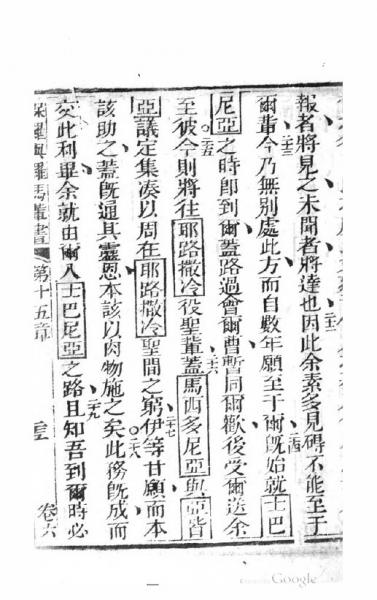 報者將見之未聞者將達也因此余素多見碍不能至于
二二
爾輩今乃無別處此方而自數年願至于爾既始就士巴
二三
二四
尼亞之時卽到爾蓋路過會爾曹暫同爾歡後受爾送余
至彼今則將往耶路撒冷役聖輩蓋馬西多尼亞與亞皆
二五
二六
亞議定集湊以周在耶路撒冷聖間之窮伊等甘願而本
二七
該助之蓋旣通其靈恩本該以肉物施之矣此務旣成而
二八
交此利畢余就由爾入士巴尼亞之路且知吾到爾時必
二九
保羅與羅馬輩書 第十五章 卷六
Google